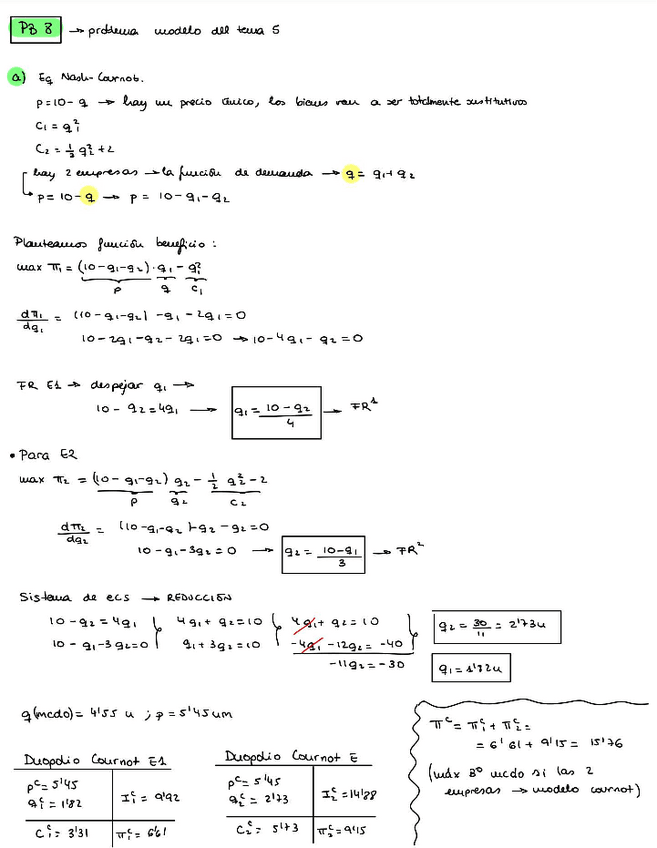 PB 8 → problema modelo del tema 5
a) Eq Nash-Cournot.
p=10-q → hay un precio único, los bienes van a ser totalmente sustitutivos
C₁ = q₁²
C₂ = 1/3 q₂² + 2
hay 2 empresas → la función de demanda → q = q₁+q₂
p=10-q → p = 10-q₁-q₂
Planteamos función beneficio:
max π₁ = (10-q₁-q₂)·q₁ - q₁²
p q C₁
dπ₁/dq₁ = (10-q₁-q₂) -q₁ - 2q₁ = 0
10-2q₁-q₂-2q₁=0 → 10-4q₁-q₂=0
FR E1 → despejar q₁ →
10-q₂=4q₁ → q₁ = 10-q₂/4 → FR¹
• Para E2
max π₂ = (10-q₁-q₂) q₂ - 1/2 q₂² - 2
p q₂ C₂
dπ₂/dq₂ = (10-q₁-q₂)-q₂-q₂=0
10-q₁-3q₂=0 → q₂ = 10-q₁/3 → FR²
Sistema de ecs → REDUCCIÓN
10-q₂=4q₁ } 4q₁+q₂=10 } 4q₁+q₂=10 } q₂ = 30/11 = 2'73u
10-q₁-3q₂=0 } q₁+3q₂=10 } -4q₁-12q₂=-40
-11q₂=-30 q₁=1'82u
q(mcdo)= 4'55 u ; p= 5'45um
πᶜ = π₁ᶜ + π₂ᶜ =
= 6'61 + 9'15 = 15'76
(máx Bº mcdo si las 2
empresas → modelo cournot)
Duopolio Cournot E1
pᶜ= 5'45
q₁ᶜ = 1'82
I₁ᶜ = 9'92
C₁ᶜ = 3'31
π₁ᶜ = 6'61
Duopolio Cournot E
pᶜ= 5'45
q₂ᶜ = 2'73
I₂ᶜ = 14'88
C₂ᶜ = 5'73
π₂ᶜ = 9'15